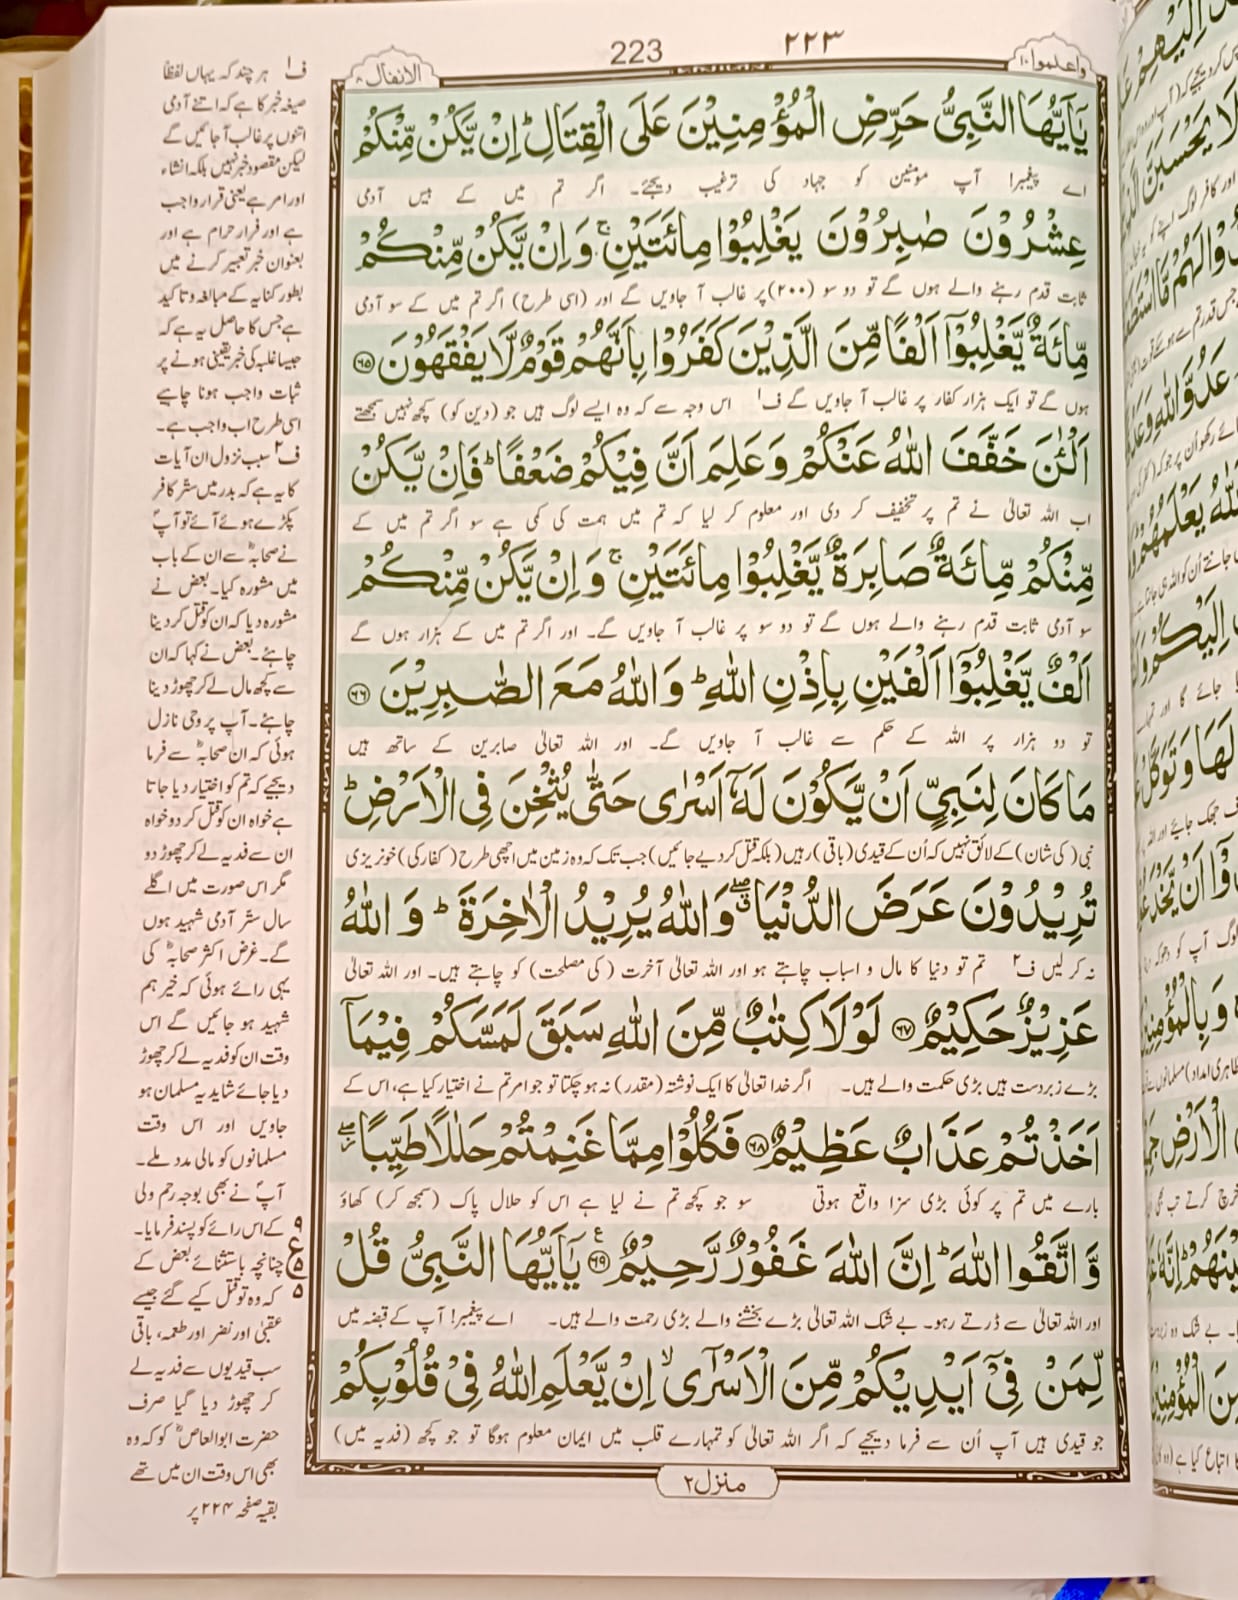 واعلموا۱۰
۲۲۳
223
الانفال۸
يٰۤاَيُّهَا النَّبِىُّ حَرِّضِ الْمُؤْمِنِيْنَ عَلَى الْقِتَالِؕ اِنْ يَّكُنْ مِّنْكُمْ
اے پیغمبر! آپ مومنین کو جہاد کی ترغیب دیجئے۔ اگر تم میں کے بیس آدمی
عِشْرُوْنَ صٰبِرُوْنَ يَغْلِبُوْا مِائَتَيْنِۚ وَاِنْ يَّكُنْ مِّنْكُمْ
ثابت قدم رہنے والے ہوں گے تو دو سو (۲۰۰) پر غالب آ جاویں گے اور (اسی طرح) اگر تم میں کے سو آدمی
مِّائَةٌ يَّغْلِبُوْۤا اَلْفًا مِّنَ الَّذِيْنَ كَفَرُوْا بِاَنَّهُمْ قَوْمٌ لَّا يَفْقَهُوْنَ ۶۵
ہوں گے تو ایک ہزار کفار پر غالب آ جاویں گے ف۱ اس وجہ سے کہ وہ ایسے لوگ ہیں جو (دین کو) کچھ نہیں سمجھتے
اَلْـٰٔنَ خَفَّفَ اللّٰهُ عَنْكُمْ وَعَلِمَ اَنَّ فِيْكُمْ ضَعْفًاؕ فَاِنْ يَّكُنْ
اب اللہ تعالیٰ نے تم پر تخفیف کر دی اور معلوم کر لیا کہ تم میں ہمت کی کمی ہے سو اگر تم میں کے
مِّنْكُمْ مِّائَةٌ صَابِرَةٌ يَّغْلِبُوْا مِائَتَيْنِۚ وَاِنْ يَّكُنْ مِّنْكُمْ
سو آدمی ثابت قدم رہنے والے ہوں گے تو دو سو پر غالب آ جاویں گے۔ اور اگر تم میں کے ہزار ہوں گے
اَلْفٌ يَّغْلِبُوْۤا اَلْفَيْنِ بِاِذْنِ اللّٰهِؕ وَاللّٰهُ مَعَ الصّٰبِرِيْنَ ۶۶
تو دو ہزار پر اللہ کے حکم سے غالب آ جاویں گے۔ اور اللہ تعالیٰ صابرین کے ساتھ ہیں
مَا كَانَ لِنَبِىٍّ اَنْ يَّكُوْنَ لَهٗۤ اَسْرٰى حَتّٰى يُثْخِنَ فِى الْاَرْضِؕ
نبی (کی شان) کے لائق نہیں کہ اُن کے قیدی (باقی) رہیں (بلکہ قتل کر دیے جائیں) جب تک کہ وہ زمین میں اچھی طرح (کفار کی) خونریزی
تُرِيْدُوْنَ عَرَضَ الدُّنْيَاۖ وَاللّٰهُ يُرِيْدُ الْاٰخِرَةَؕ وَاللّٰهُ
نہ کر لیں ف۲ تم تو دنیا کا مال و اسباب چاہتے ہو اور اللہ تعالیٰ آخرت (کی مصلحت) کو چاہتے ہیں۔ اور اللہ تعالیٰ
عَزِيْزٌ حَكِيْمٌ ۶۷ لَوْلَا كِتٰبٌ مِّنَ اللّٰهِ سَبَقَ لَمَسَّكُمْ فِيْمَاۤ
بڑے زبردست ہیں بڑی حکمت والے ہیں۔ اگر خدا تعالیٰ کا ایک نوشتہ (مقدر) نہ ہو چکتا تو جو امر تم نے اختیار کیا ہے، اس کے
اَخَذْتُمْ عَذَابٌ عَظِيْمٌ ۶۸ فَكُلُوْا مِمَّا غَنِمْتُمْ حَلٰلًا طَيِّبًا
بارے میں تم پر کوئی بڑی سزا واقع ہوتی سو جو کچھ تم نے لیا ہے اس کو حلال پاک (سمجھ کر) کھاؤ
وَّاتَّقُوا اللّٰهَؕ اِنَّ اللّٰهَ غَفُوْرٌ رَّحِيْمٌ ۶۹ يٰۤاَيُّهَا النَّبِىُّ قُلْ
اور اللہ تعالیٰ سے ڈرتے رہو۔ بے شک اللہ تعالیٰ بڑے بخشنے والے بڑی رحمت والے ہیں۔ اے پیغمبر! آپ کے قبضہ میں
لِّمَنْ فِىْۤ اَيْدِيْكُمْ مِّنَ الْاَسْرٰٓىۙ اِنْ يَّعْلَمِ اللّٰهُ فِىْ قُلُوْبِكُمْ
جو قیدی ہیں آپ اُن سے فرما دیجیے کہ اگر اللہ تعالیٰ کو تمہارے قلب میں ایمان معلوم ہوگا تو جو کچھ (فدیہ میں)
منزل۲
ف۱ ہر چند کہ یہاں لفظاً
صیغہ خبر کا ہے کہ اتنے آدمی
اتنوں پر غالب آ جائیں گے
لیکن مقصود خبر نہیں بلکہ انشاء
اور امر ہے یعنی قرار واجب
ہے اور فرار حرام ہے اور
بعنوان خبر تعبیر کرنے میں
بطور کنایہ کے مبالغہ و تاکید
ہے جس کا حاصل یہ ہے کہ
جیسا غلبہ کی خبر یقینی ہونے پر
ثبات واجب ہونا چاہیے
اسی طرح اب واجب ہے۔
ف۲ سبب نزول ان آیات
کا یہ ہے کہ بدر میں ستر کافر
پکڑے ہوئے آئے تو آپؐ
نے صحابہؓ سے ان کے باب
میں مشورہ کیا۔ بعض نے
مشورہ دیا کہ ان کو قتل کر دینا
چاہئے۔ بعض نے کہا کہ ان
سے کچھ مال لے کر چھوڑ دینا
چاہئے۔ آپ پر وحی نازل
ہوئی کہ ان صحابہؓ سے فرما
دیجیے کہ تم کو اختیار دیا جاتا
ہے خواہ ان کو قتل کر دو خواہ
ان سے فدیہ لے کر چھوڑ دو
مگر اس صورت میں اگلے
سال ستر آدمی شہید ہوں
گے۔ غرض اکثر صحابہؓ کی
یہی رائے ہوئی کہ خیر ہم
شہید ہو جائیں گے اس
وقت ان کو فدیہ لے کر چھوڑ
دیا جائے شاید یہ مسلمان ہو
جاویں اور اس وقت
مسلمانوں کو مالی مدد ملے۔
آپؐ نے بھی بوجہ رحم دلی
کے اس رائے کو پسند فرمایا۔
چنانچہ باستثنائے بعض کے
کہ وہ تو قتل کیے گئے جیسے
عقبیٰ اور نضر اور طعمہ، باقی
سب قیدیوں سے فدیہ لے
کر چھوڑ دیا گیا صرف
حضرت ابوالعاصؓ کو کہ وہ
بھی اس وقت ان میں تھے
بقیہ صفحہ ۲۲۴ پر
۹
ع
۵
۵